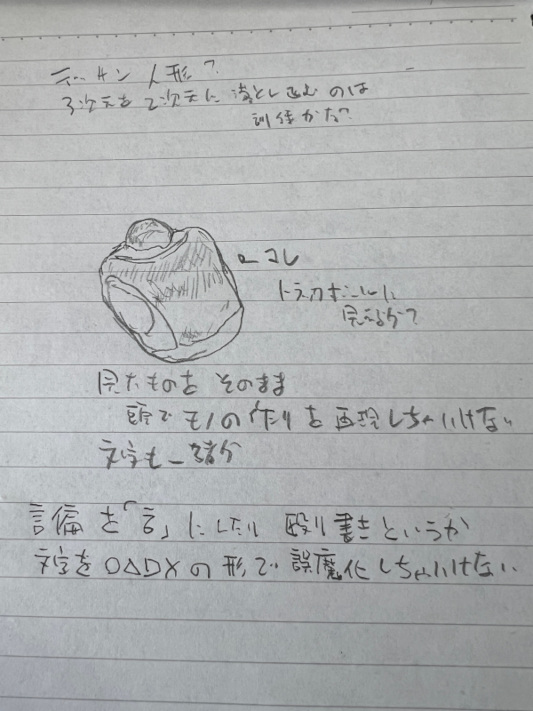 デッサン人形?
3次元を2次元に落とし込むのは
訓練かな?
←コレ
トラックボールに
見えるか?
見たものをそのまま
頭でモノの作りを再現しちゃいけない
文字も一緒か
言偏を「言」にしたり殴り書きというか
文字を○△□Xの形で誤魔化しちゃいけない